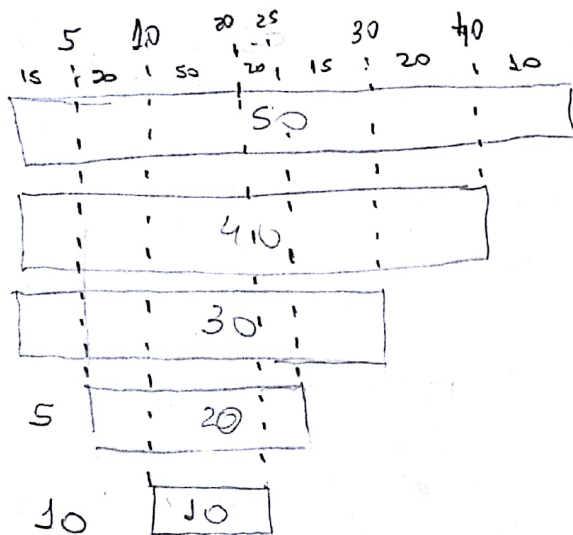 5 10 20 25 30 40
15 20 50 20 15 20 10
50
40
30
5 20
10 10